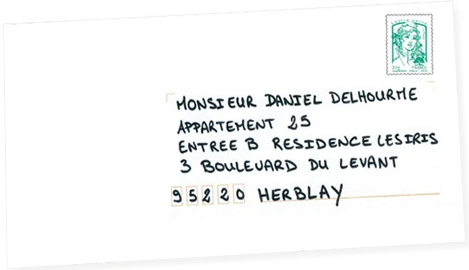 MONSIEUR DANIEL DELHOURME
APPARTEMENT 25
ENTREE B RESIDENCE LES IRIS
3 BOULEVARD DU LEVANT
95220 HERBLAY